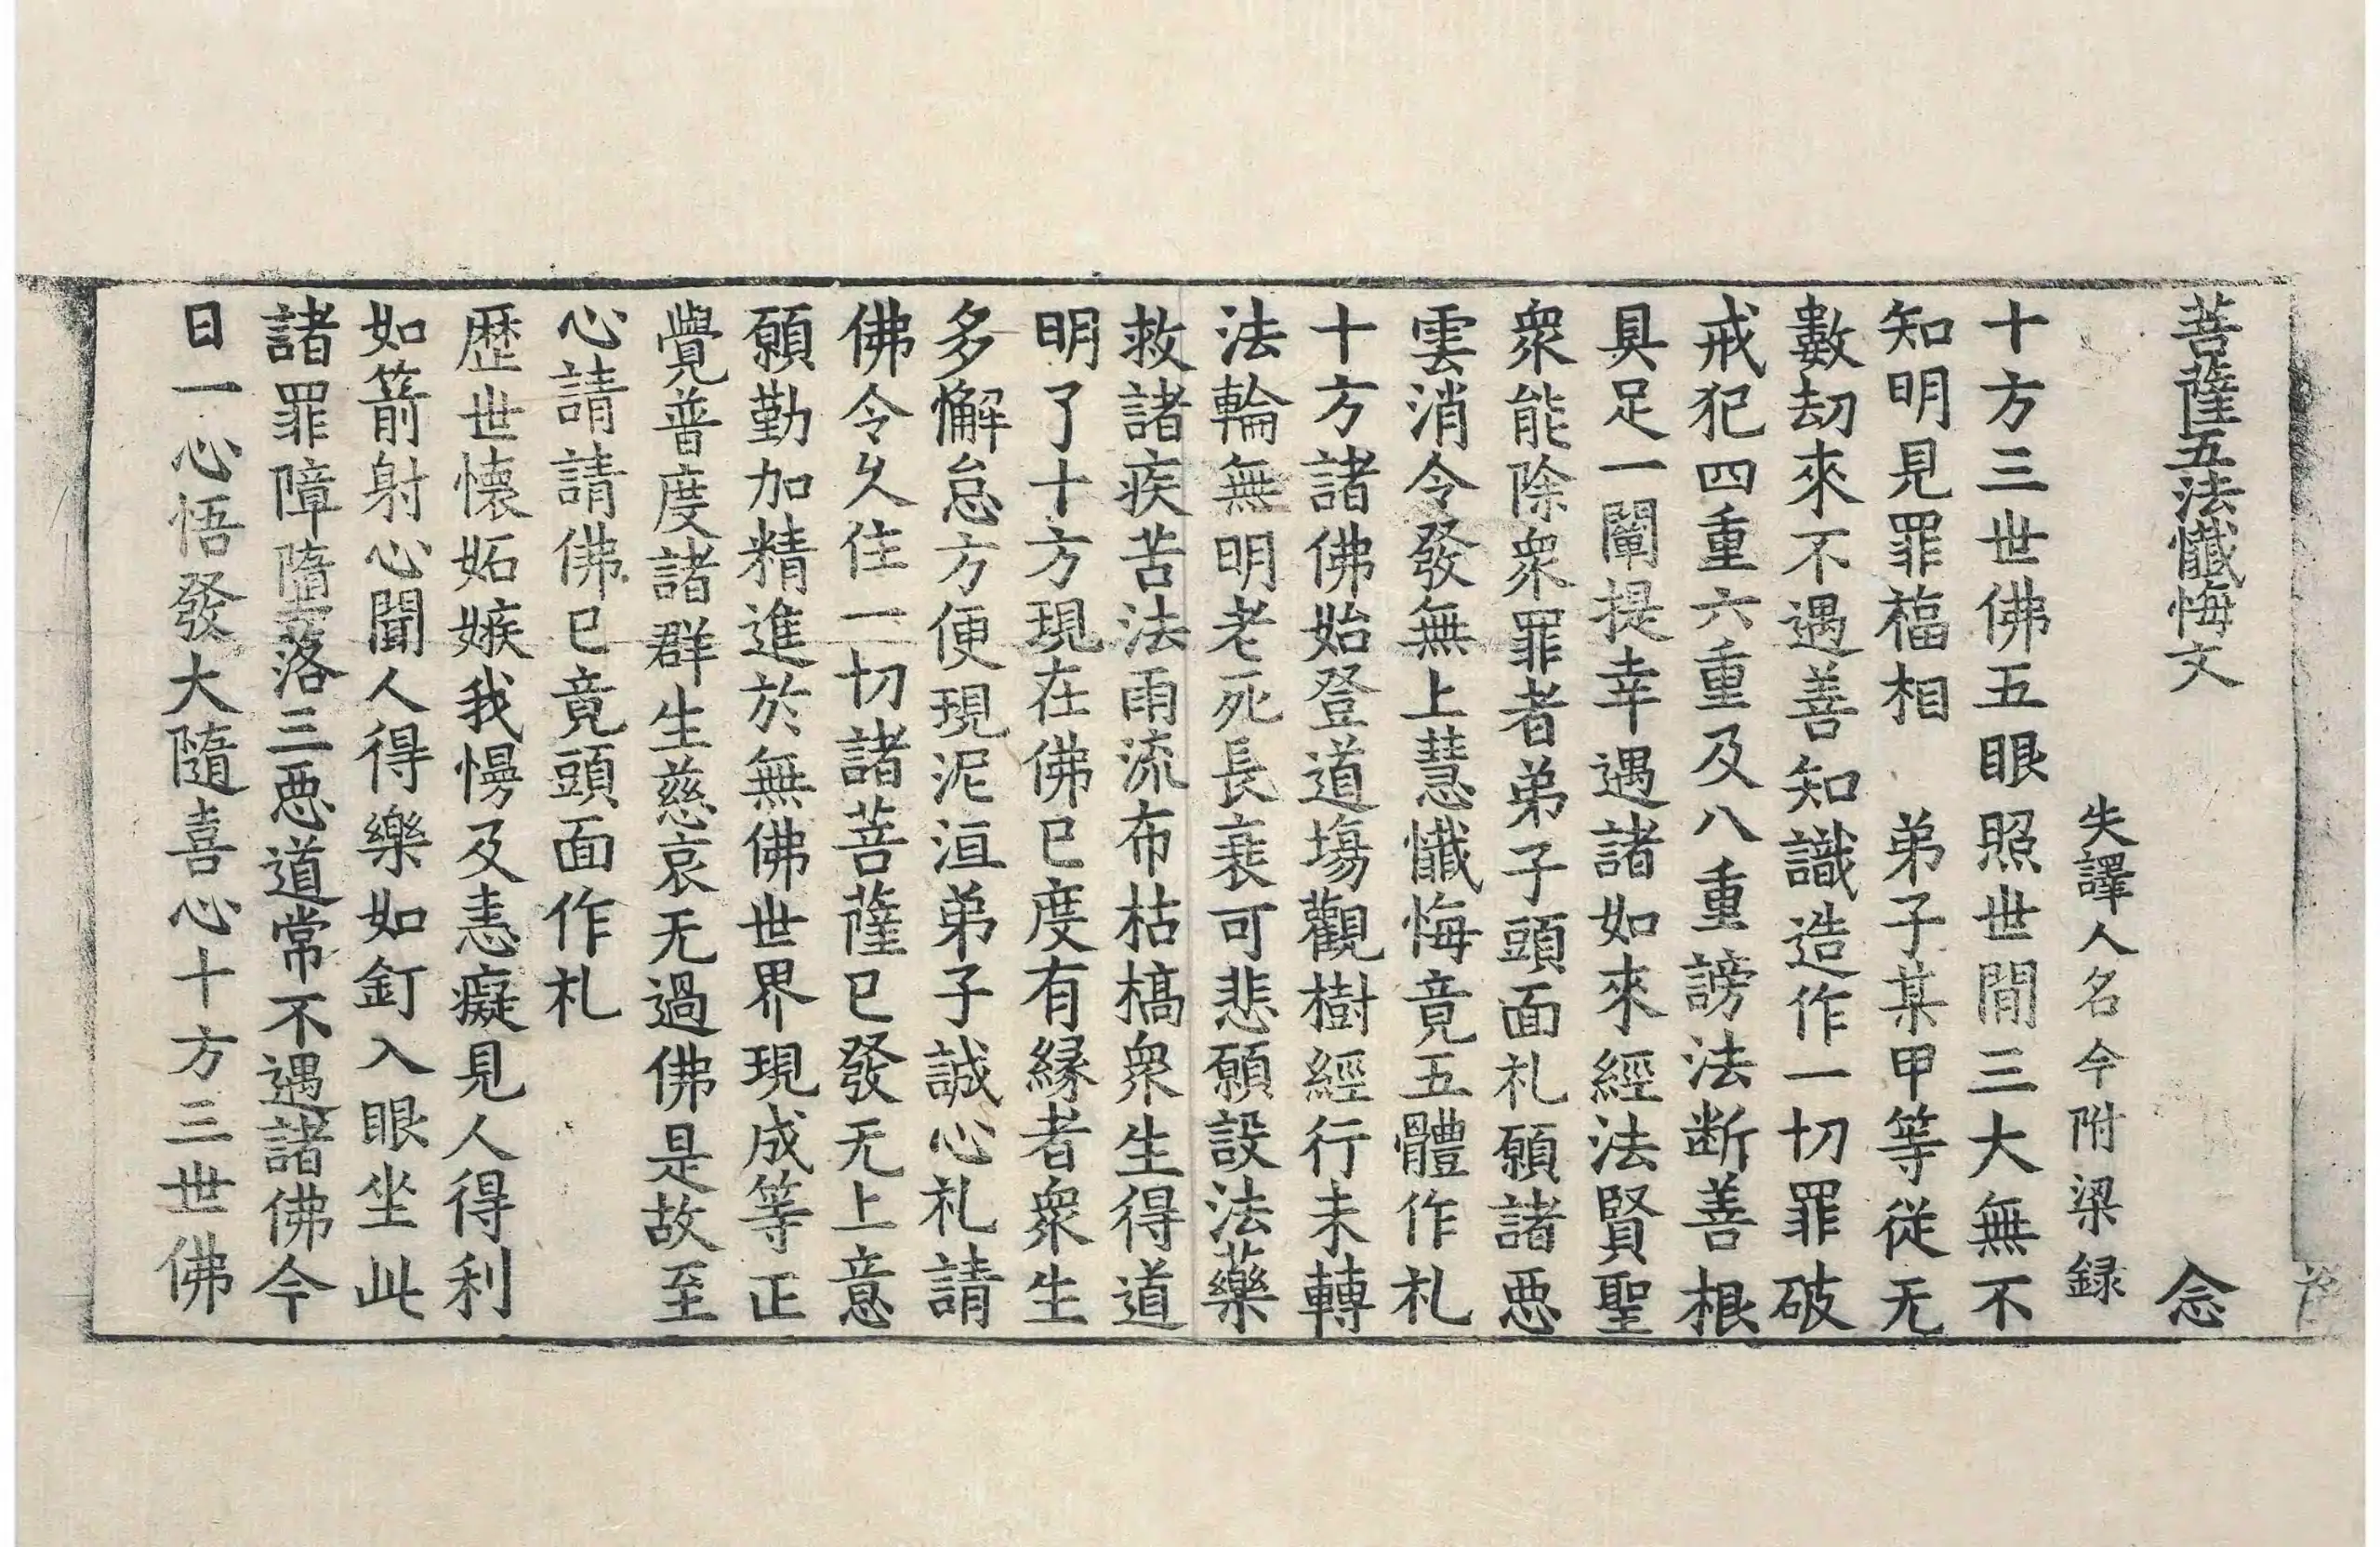 菩薩五法懺悔文 念
失譯人名今附梁録
十方三世佛五眼照世間三大無不
知明見罪福相 弟子某甲等従无
數劫來不遇善知識造作一切罪破
戒犯四重六重及八重謗法断善根
具足一闡提幸遇諸如來經法賢聖
衆能除衆罪者弟子頭面礼願諸悪
雲消令發無上慧懺悔竟五體作礼
十方諸佛始登道場觀樹經行未轉
法輪無明老死長衰可悲願設法藥
救諸疾苦法雨流布枯槁衆生得道
明了十方現在佛已度有縁者衆生
多懈怠方便現泥洹弟子誠心礼請
佛令久住一切諸菩薩已發无上意
願勤加精進於無佛世界現成等正
覺普度諸群生慈哀无過佛是故至
心請請佛已竟頭面作礼
歴世懐妬嫉我慢及恚癡見人得利
如箭射心聞人得樂如釘入眼坐此
諸罪障隋落三悪道常不遇諸佛今
日一心悟發大隨喜心十方三世佛